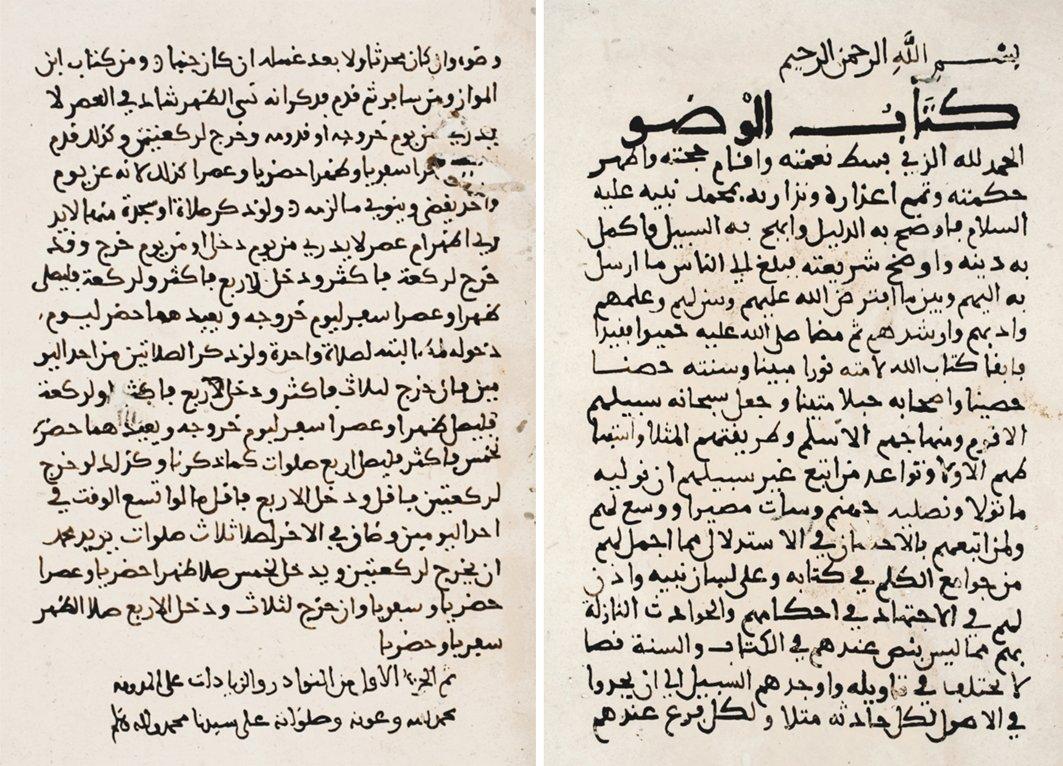 بِسْمِ اللَّهِ الرحمن الرحيم
كتاب الوضو
الحمد لله الذي بسط نعمته واقام حجته واظهر
حكمته وتمم اعذاره ونذارته بمحمد نبيه عليه
السلام فاوضح به الدليل وانهج به السبيل فاكمل
به دينه واوضح شريعته فبلغ الى الناس ما ارسل
به اليهم وبين ما افترض الله عليهم وسن لهم وعلمهم
وادبهم وارشدهم ثم مضا صلى الله عليه حميدا فقيدا
فابقا كتاب الله لامته نورا مبينا وسنته حصنا
حصينا واصحابه حبلا متينا وجعل سبحانه سبيلهم
الاقوم ومنهاجهم الاسلم وطريقتهم المثلا
وتواعد من اتبع غير سبيلهم ان نوليه
ما تولا ونصليه جهنم وسات مصيرا ووسع لهم
ولمن اتبعهم بالاحسان في الاستدلال مما اجمل لهم
من جوامع الكلم في كتابه وعلى لسان نبيه واذن
لهم في الاجتهاد في احكامهم والحوادث النازلة
بهم مما ليس بنص عندهم في الكتاب والسنة نصا
لا يختلف في تاويله واوجدهم السبيل الى ان يجدوا
في الاصول لكل حادثة مثلا ولكل فرع عندهم
وضوه وان كان محدثا ولا بعد غسله ان كان جنبا ومن كتاب ابن
المواز ومن سافر ثم قدم فذكر انه نسي الظهر شاك في العصر لا
يدري من يوم خروجه او قدومه وخرج لركعتين وكذلك قدم
سفريا وظهرا حضريا وعصرا كذلك لانه عن يوم
واحد يقضي وينوي ما لزمه ولو ذكر صلاة او سجدة منها لا يد
ري اظهر ام عصر لا يدري من يوم دخل او من يوم خرج وقد
خرج لركعة فاكثر ودخل لاربع فاكثر ولركعة فليصلي
ظهرا وعصرا سفر ليوم خروجه ويعيدهما حضر ليوم
دخوله البتة لصلاة واحدة ولو ذكر الصلاتين من احد اليو
مين فان خرج لثلاث فاكثر ودخل لاربع فاكثر او لركعة
فليصل ظهرا وعصرا سفر ليوم خروجه ويعيدهما حضر
لخمس فاكثر فليصل اربع صلوات كما ذكرنا وكذلك لو خرج
لركعتين فاقل ودخل لاربع فاقل مالو اتسع الوقت في
احد اليومين وضاق في الاخر لصلا ثلاث صلوات يريد محمد
ان يخرج لركعتين ويدخل لخمس صلا ظهرا حضريا وعصرا
حضريا وسفريا وان خرج لثلاث ودخل لاربع صلا الظهر
سفريا وحضريا
تم الجزء الاول من النوادر والزيادات على المدونة
بحمد الله وعونه وصلواته على سيدنا محمد واله